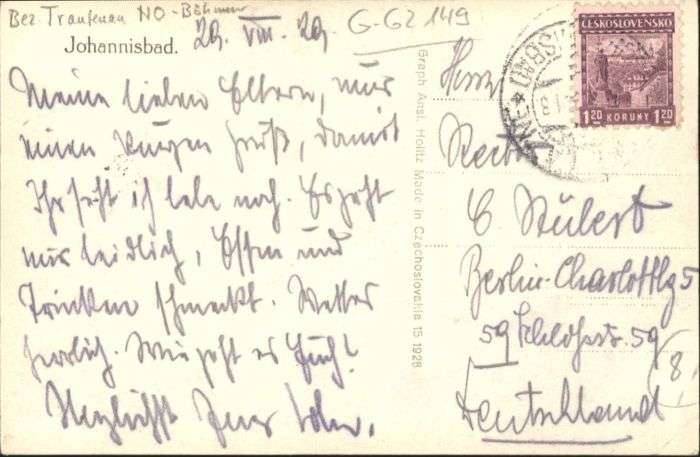 Bez Trautenau NO-Böhmen
G-GZ 149
Johannisbad. 29. VIII. 29.
Meine lieben Eltern, nur
einen kurzen Gruß, damit
Ihr seht ich lebe noch. Es geht
mir leidlich, Essen und
Trinken schmeckt. Wetter
herrlich. Wie geht es Euch?
Herzlichst Euer
Graph. Anst. Holitz Made in Czechoslovakia 15 1928
ČESKOSLOVENSKO
1.20 KORUNY 1.20
Herrn
C Stübert
Berlin-Charlottbg 5
59 Schloßstr. 59
Deutschland
8